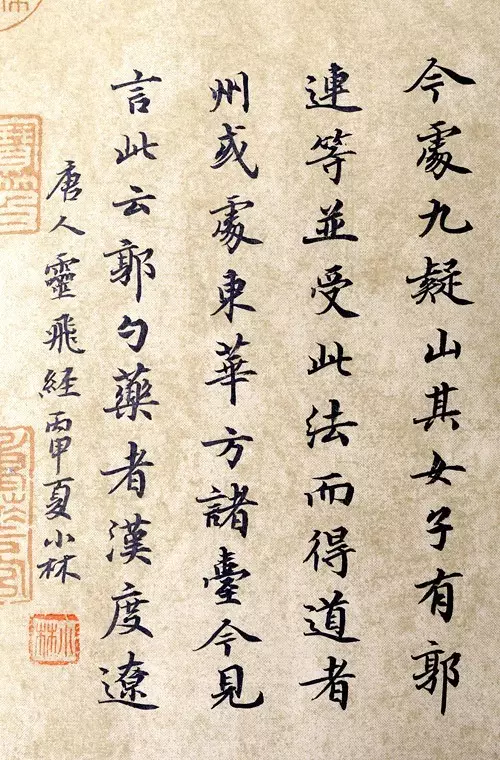 今處九疑山其女子有郭
連等並受此法而得道者
州或處東華方諸臺今見
言此云郭勺藥者漢度遼
唐人靈飛經丙申夏小林
小林